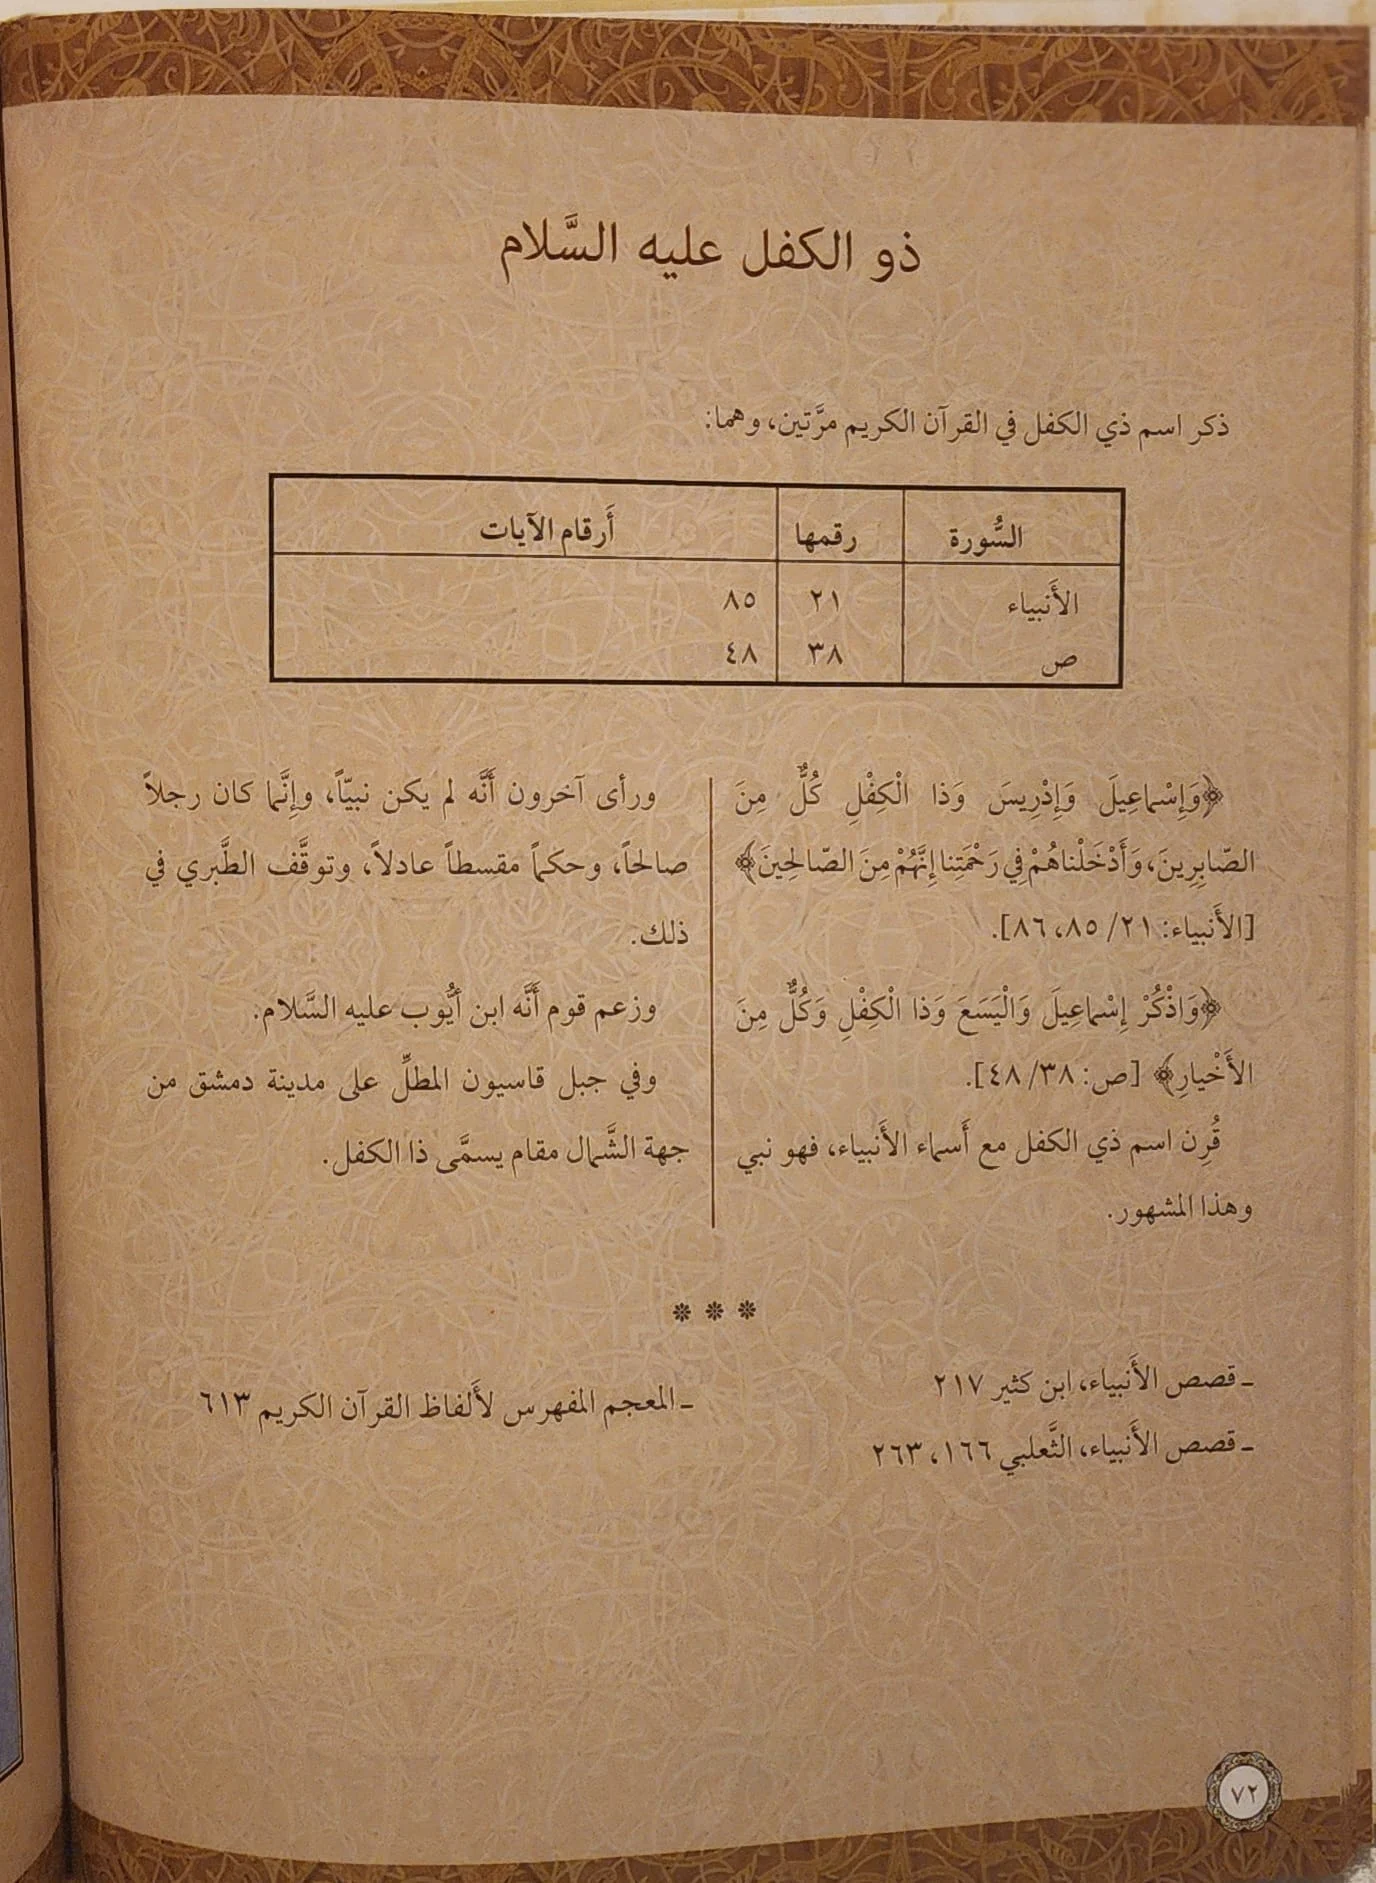 ذو الكفل عليه السَّلام
ذكر اسم ذي الكفل في القرآن الكريم مرَّتين، وهما:
السُّورة رقمها أَرقام الآيات
الأَنبياء ٢١ ٨٥
ص ٣٨ ٤٨
﴿وَإِسْماعِيلَ وَإِدْرِيسَ وَذا الْكِفْلِ كُلٌّ مِنَ
الصّابِرِينَ، وَأَدْخَلْناهُمْ فِي رَحْمَتِنا إِنَّهُمْ مِنَ الصّالِحِينَ﴾
[الأَنبياء: ٢١/ ٨٥، ٨٦].
﴿وَاذْكُرْ إِسْماعِيلَ وَالْيَسَعَ وَذا الْكِفْلِ وَكُلٌّ مِنَ
الأَخْيارِ﴾ [ص: ٣٨/ ٤٨].
قُرِن اسم ذي الكفل مع أَسماء الأَنبياء، فهو نبي
وهذا المشهور.
ورأى آخرون أَنَّه لم يكن نبيّاً، وإِنَّما كان رجلاً
صالحاً، وحكماً مقسطاً عادلاً، وتوقَّف الطَّبري في
ذلك.
وزعم قوم أَنَّه ابن أيُّوب عليه السَّلام.
وفي جبل قاسيون المطلِّ على مدينة دمشق من
جهة الشَّمال مقام يسمَّى ذا الكفل.
* * *
ـ قصص الأَنبياء، ابن كثير ٢١٧
ـ قصص الأَنبياء، الثَّعلبي ١٦٦، ٢٦٣
ـ المعجم المفهرس لأَلفاظ القرآن الكريم ٦١٣
٧٢